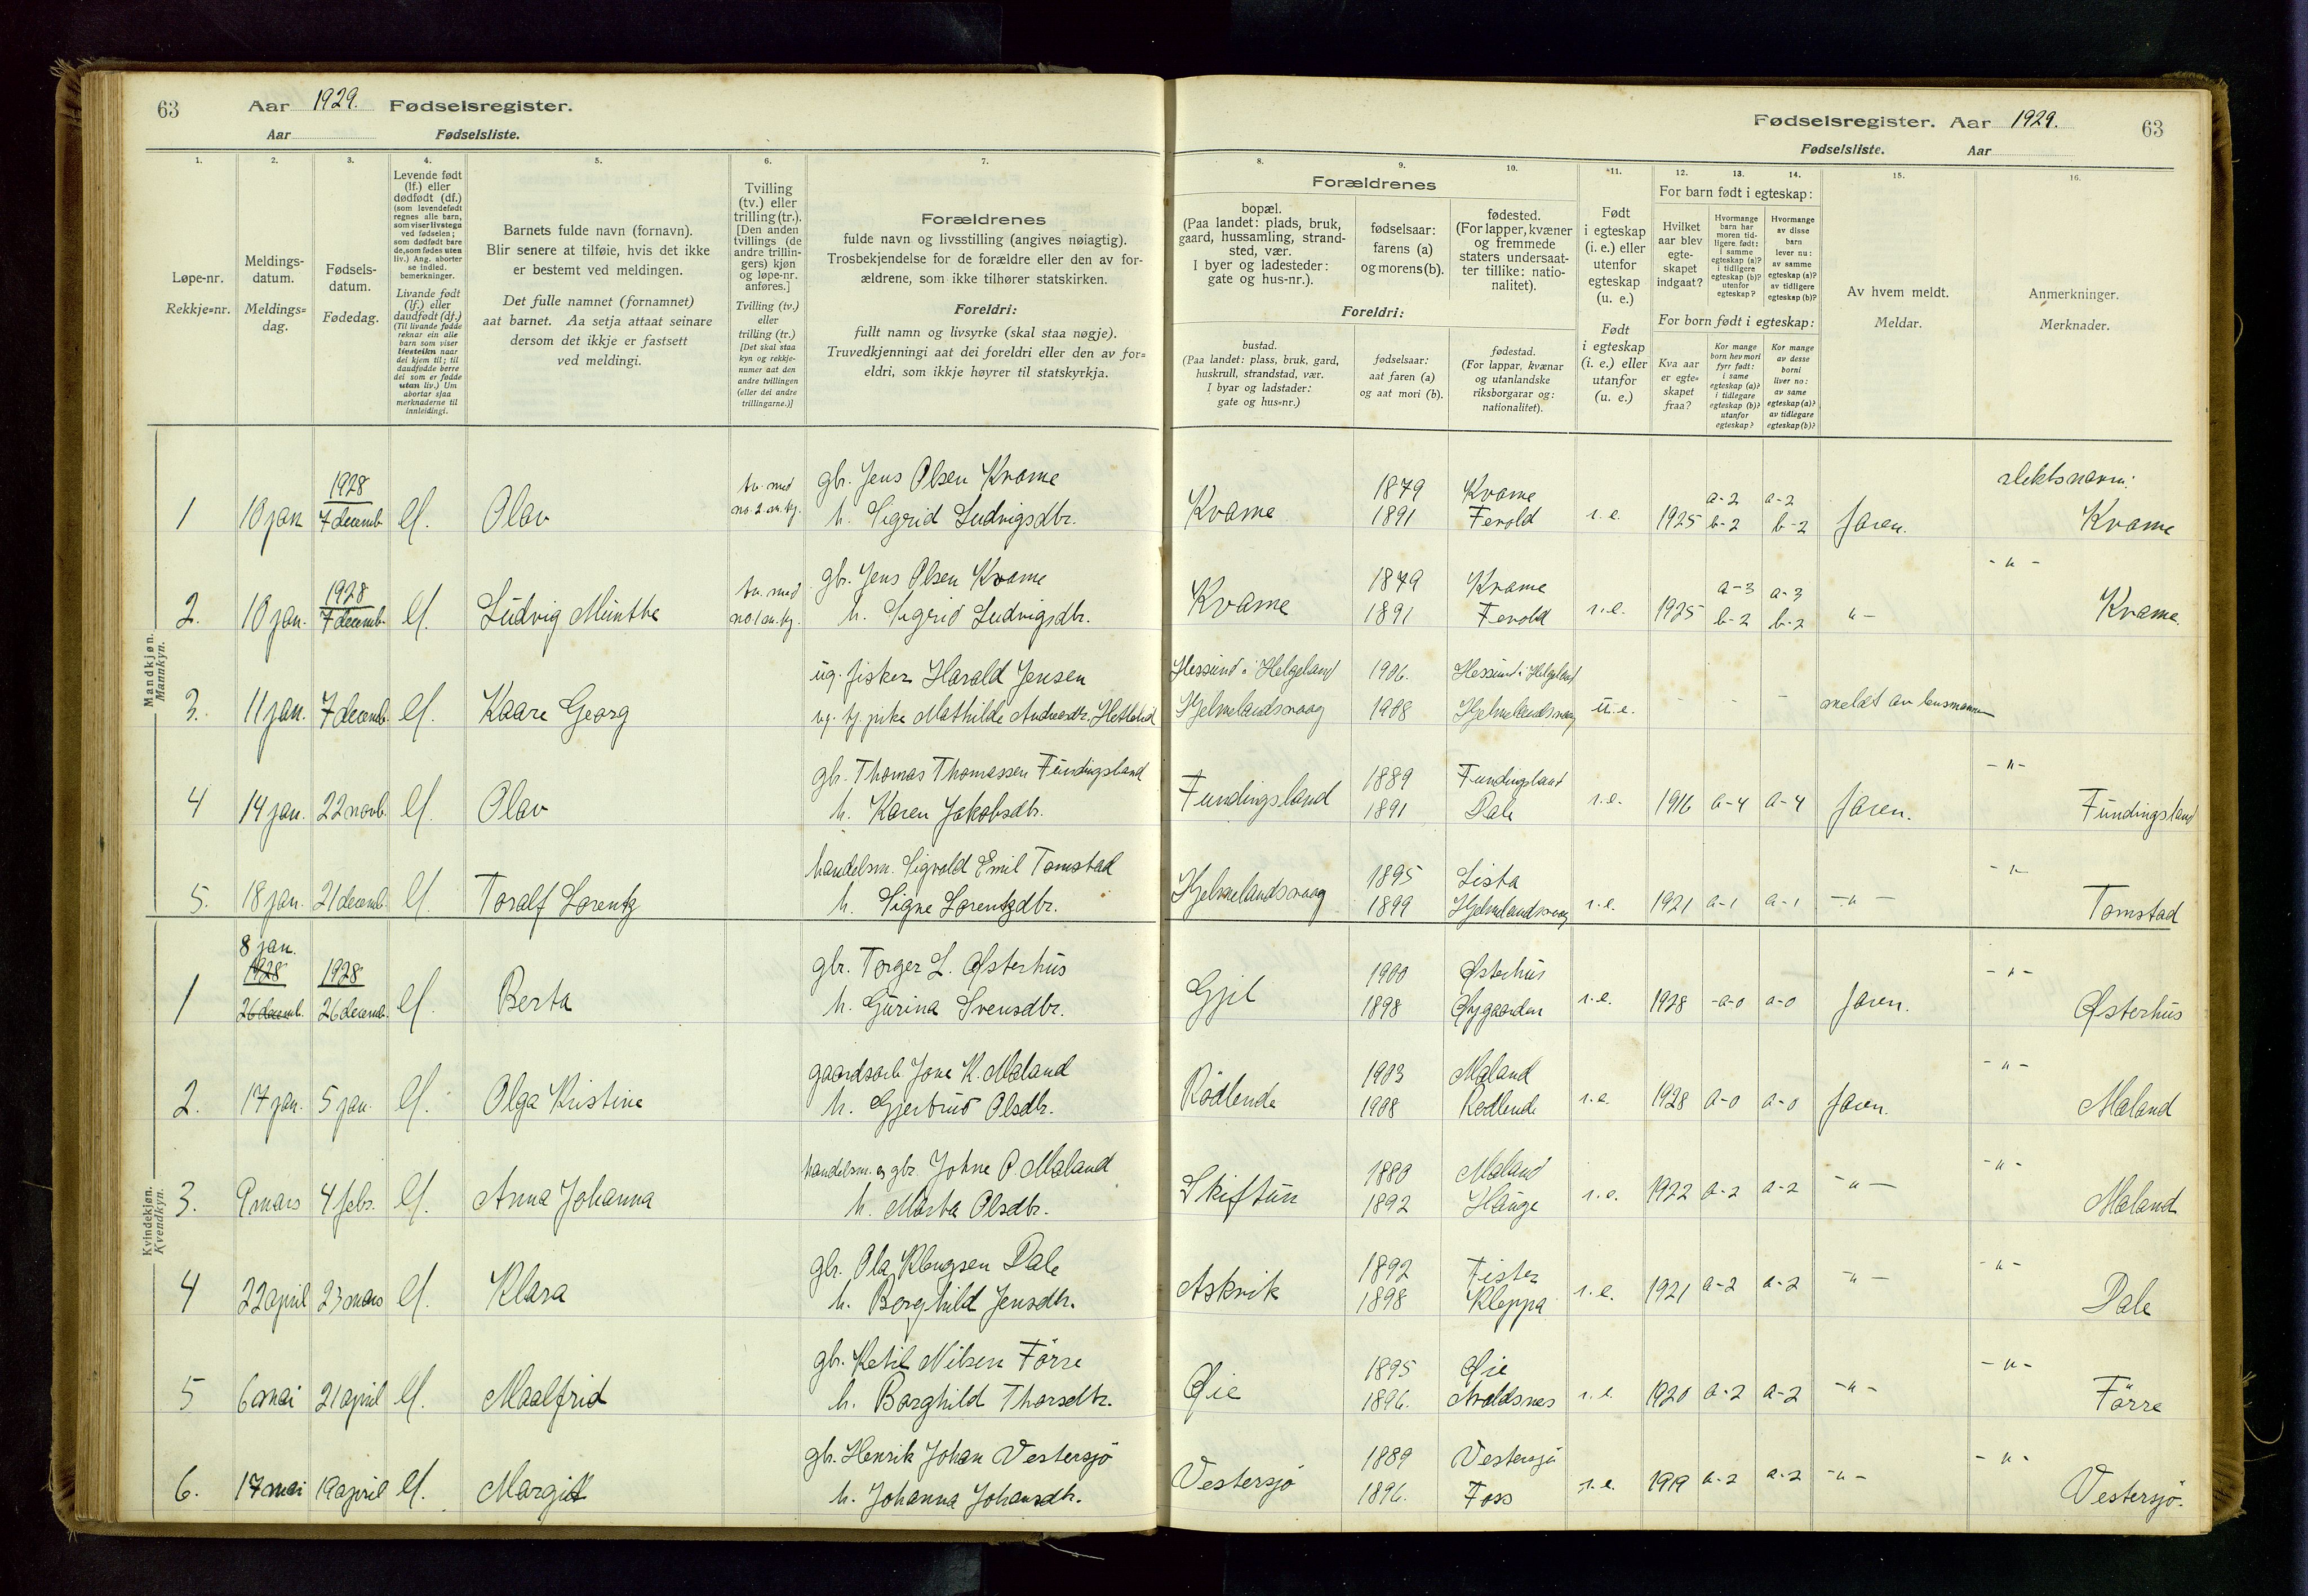 63 Aar 1929. Fødselsregister.
Aar Fødselsliste.
Fødselsregister. Aar 1929. 63
Fødselsliste. Aar
1. 2. 3. 4. 5. 6. 7.
8. 9. 10. 11. 12. 13. 14. 15. 16.
Løpe-nr.
Rekkje=nr.
Meldings-
datum.
Meldings=
dag.
Fødsels-
datum.
Fødedag.
Levende født
(lf.) eller
dødfødt (df.)
(som levendefødt
regnes alle barn,
som viser livstegn
ved fødselen;
som dødfødt bare
de, som fødes uten
liv.) Ang. aborter
se indled.
bemerkninger.
Livande født
(lf.) eller
daudfødt (df.)
(Til livande fødde
reknar ein alle
barn som viser
livsteikn naar
dei kjem til; til
daudfødde berre
dei som er fødde
utan liv.) Um
abortar sjaa
merknaderne til
innleidingi.
Barnets fulde navn (fornavn).
Blir senere at tilføie, hvis det ikke
er bestemt ved meldingen.
Det fulle namnet (fornamnet)
aat barnet. Aa setja attaat seinare
dersom det ikkje er fastsett
ved meldingi.
Tvilling
(tv.) eller
trilling (tr.).
[Den anden
tvillings (de
andre trillin-
gers) kjøn
og løpe-nr.
anføres.]
Tvilling (tv.)
eller
trilling (tr.)
[Det skal staa
kyn og rekkje-
numer aat den
andre tvillingen
(eller dei andre
trillingarne.)]
Forældrenes
fulde navn og livsstilling (angives nøiagtig).
Trosbekjendelse for de forældre eller den av for-
ældrene, som ikke tilhører statskirken.
Foreldri:
fullt namn og livsyrke (skal staa nøgje).
Truvedkjenningi aat dei foreldri eller den av for=
eldri, som ikkje høyrer til statskyrkja.
Forældrenes
bopæl.
(Paa landet: plads, bruk,
gaard, hussamling, strand-
sted, vær.
I byer og ladesteder:
gate og hus-nr.).
fødselsaar:
farens (a)
og morens (b).
fødested.
(For lapper, kvæner
og fremmede
staters undersaat-
ter tillike: natio-
nalitet).
Foreldri:
bustad.
(Paa landet: plass, bruk, gard,
huskrull, strandstad, vær.
I byar og ladstader:
gate og hus=nr.)
fødselsaar:
aat faren (a)
og aat mori (b).
fødestad.
(For lappar, kvænar
og utanlandske
riksborgarar og:
nationalitet).
Født
i egteskap
(i. e.) eller
utenfor
egteskap
(u. e.)
Født
i egteskap
(i. e.) eller
utanfor
(u. e.)
For barn født i egteskap:
Hvilket
aar blev
egte-
skapet
indgaat?
Hvormange
barn har
moren tid-
ligere født:
i samme
egteskap (a)?
i tidligere
egteskap (b)?
utenfor
egteskap?
Hvormange
av disse
barn
lever nu:
av samme
egteskap (a)?
av tidligere
egteskap (b)?
For born født i egteskap:
Kva aar
er egte=
skapet
fraa?
Kor mange
born hev mori
fyrr født:
i same
egteskap (a)?
i tidlegare
egteskap (b)?
utanfor
egteskap?
Kor mange
av desse
borni
liver no:
av same
egteskap (a)?
av tidlegare
egteskap (b)?
Av hvem meldt.
Meldar.
Anmerkninger.
Merknader.
Mandkjøn.
Mannkyn.
1 10 jan 1928 7 decemb. lf. Olav tv. med no. 2 m. kj. gbr. Jens Olsen Kvame 1879 Kvame a-2 a-2 slektsnavn:
h. Sigrid Ludvigsdtr. Kvame 1891 Fevold i.e. 1925 b-2 b-2 faren. Kvame
2. 10 jan. 1928 7 decemb. lf. Ludvig Munthe tv. med no 1 m. kj. gbr. Jens Olsen Kvame 1879 Kvame a-3 a-3 -"-
h. Sigrid Ludvigsdtr. Kvame 1891 Fevold i.e. 1925 b-2 b-2 "- Kvame.
3. 11 jan. 7 decemb. lf. Kaare Georg ug. fisker Harald Jensen Hessund i Helgeland 1906. Hessund i Helgeland
ug. tj. pike Mathilde Andreasdtr. Hetland Hjelmelandsvaag 1908 Hjelmelandsvaag u.e. - - meldt av lensmannen
4 14 jan. 22 novb. lf. Olav gbr. Thomas Thomassen Fundingsland 1889 Fundingsland -"-
h. Karen Jakobsdtr. Fundingsland 1891 Dale i.e. 1916 a-4 a-4 faren. Fundingsland
5. 18 jan. 21 decemb. lf. Toralf Lorentz handelsm. Sigvald Emil Tomstad 1895 Lista -"-
h. Signe Lorentzdtr. Hjelmelandsvaag 1899 Hjelmelandsvaag i.e. 1921 a-1 a-1 -"- Tomstad
Kvindekjøn.
Kvendkyn.
1 8 jan. 1928 26 decemb. 1928 26 decemb. lf. Berta gbr. Torger L. Østerhus 1900 Østerhus -"-
h. Gurina Svensdtr. Gjil 1898 Øygaarden i.e. 1928 -a-0 a-0 faren. Østerhus
2. 17 jan. 5 jan. lf. Olga Kristine gaardsarb. Jone K. Maland 1903 Maland -"-
h. Gjertrud Olsdtr. Rødlende 1908 Rødlende i.e. 1928 a-0 a-0 faren. Maland
3. 9 mars 4 febr. lf. Anna Johanna handelsm. og gbr. Johne O. Maland 1880 Maland -"-
h. Marta Olsdtr. Skiftun 1892 Hauge i.e. 1922 a-2 a-2 -"- Maland
4 22 april 23 mars lf. Klara gbr. Ola Klengsen Dale 1892 Fister -"-
h. Borghild Jensdtr. Askvik 1898 Kleppa i.e. 1921 a-2 a-2 -"- Dale
5 6 mai 21 april lf. Maalfrid gbr. Ketil Nilsen Førre 1895 Øie -"-
h. Borghild Thorsdtr. Øie 1896. Avaldsnes i.e 1920 a-2 a-2 -"- Førre
6. 17 mai 19 april lf. Margit gbr. Henrik Johan Vestersjø 1889 Vestersjø -"-
h. Johanna Johansdtr. Vestersjø 1896. Foss i.e. 1919 a-2 a-2 -"- Vestersjø.